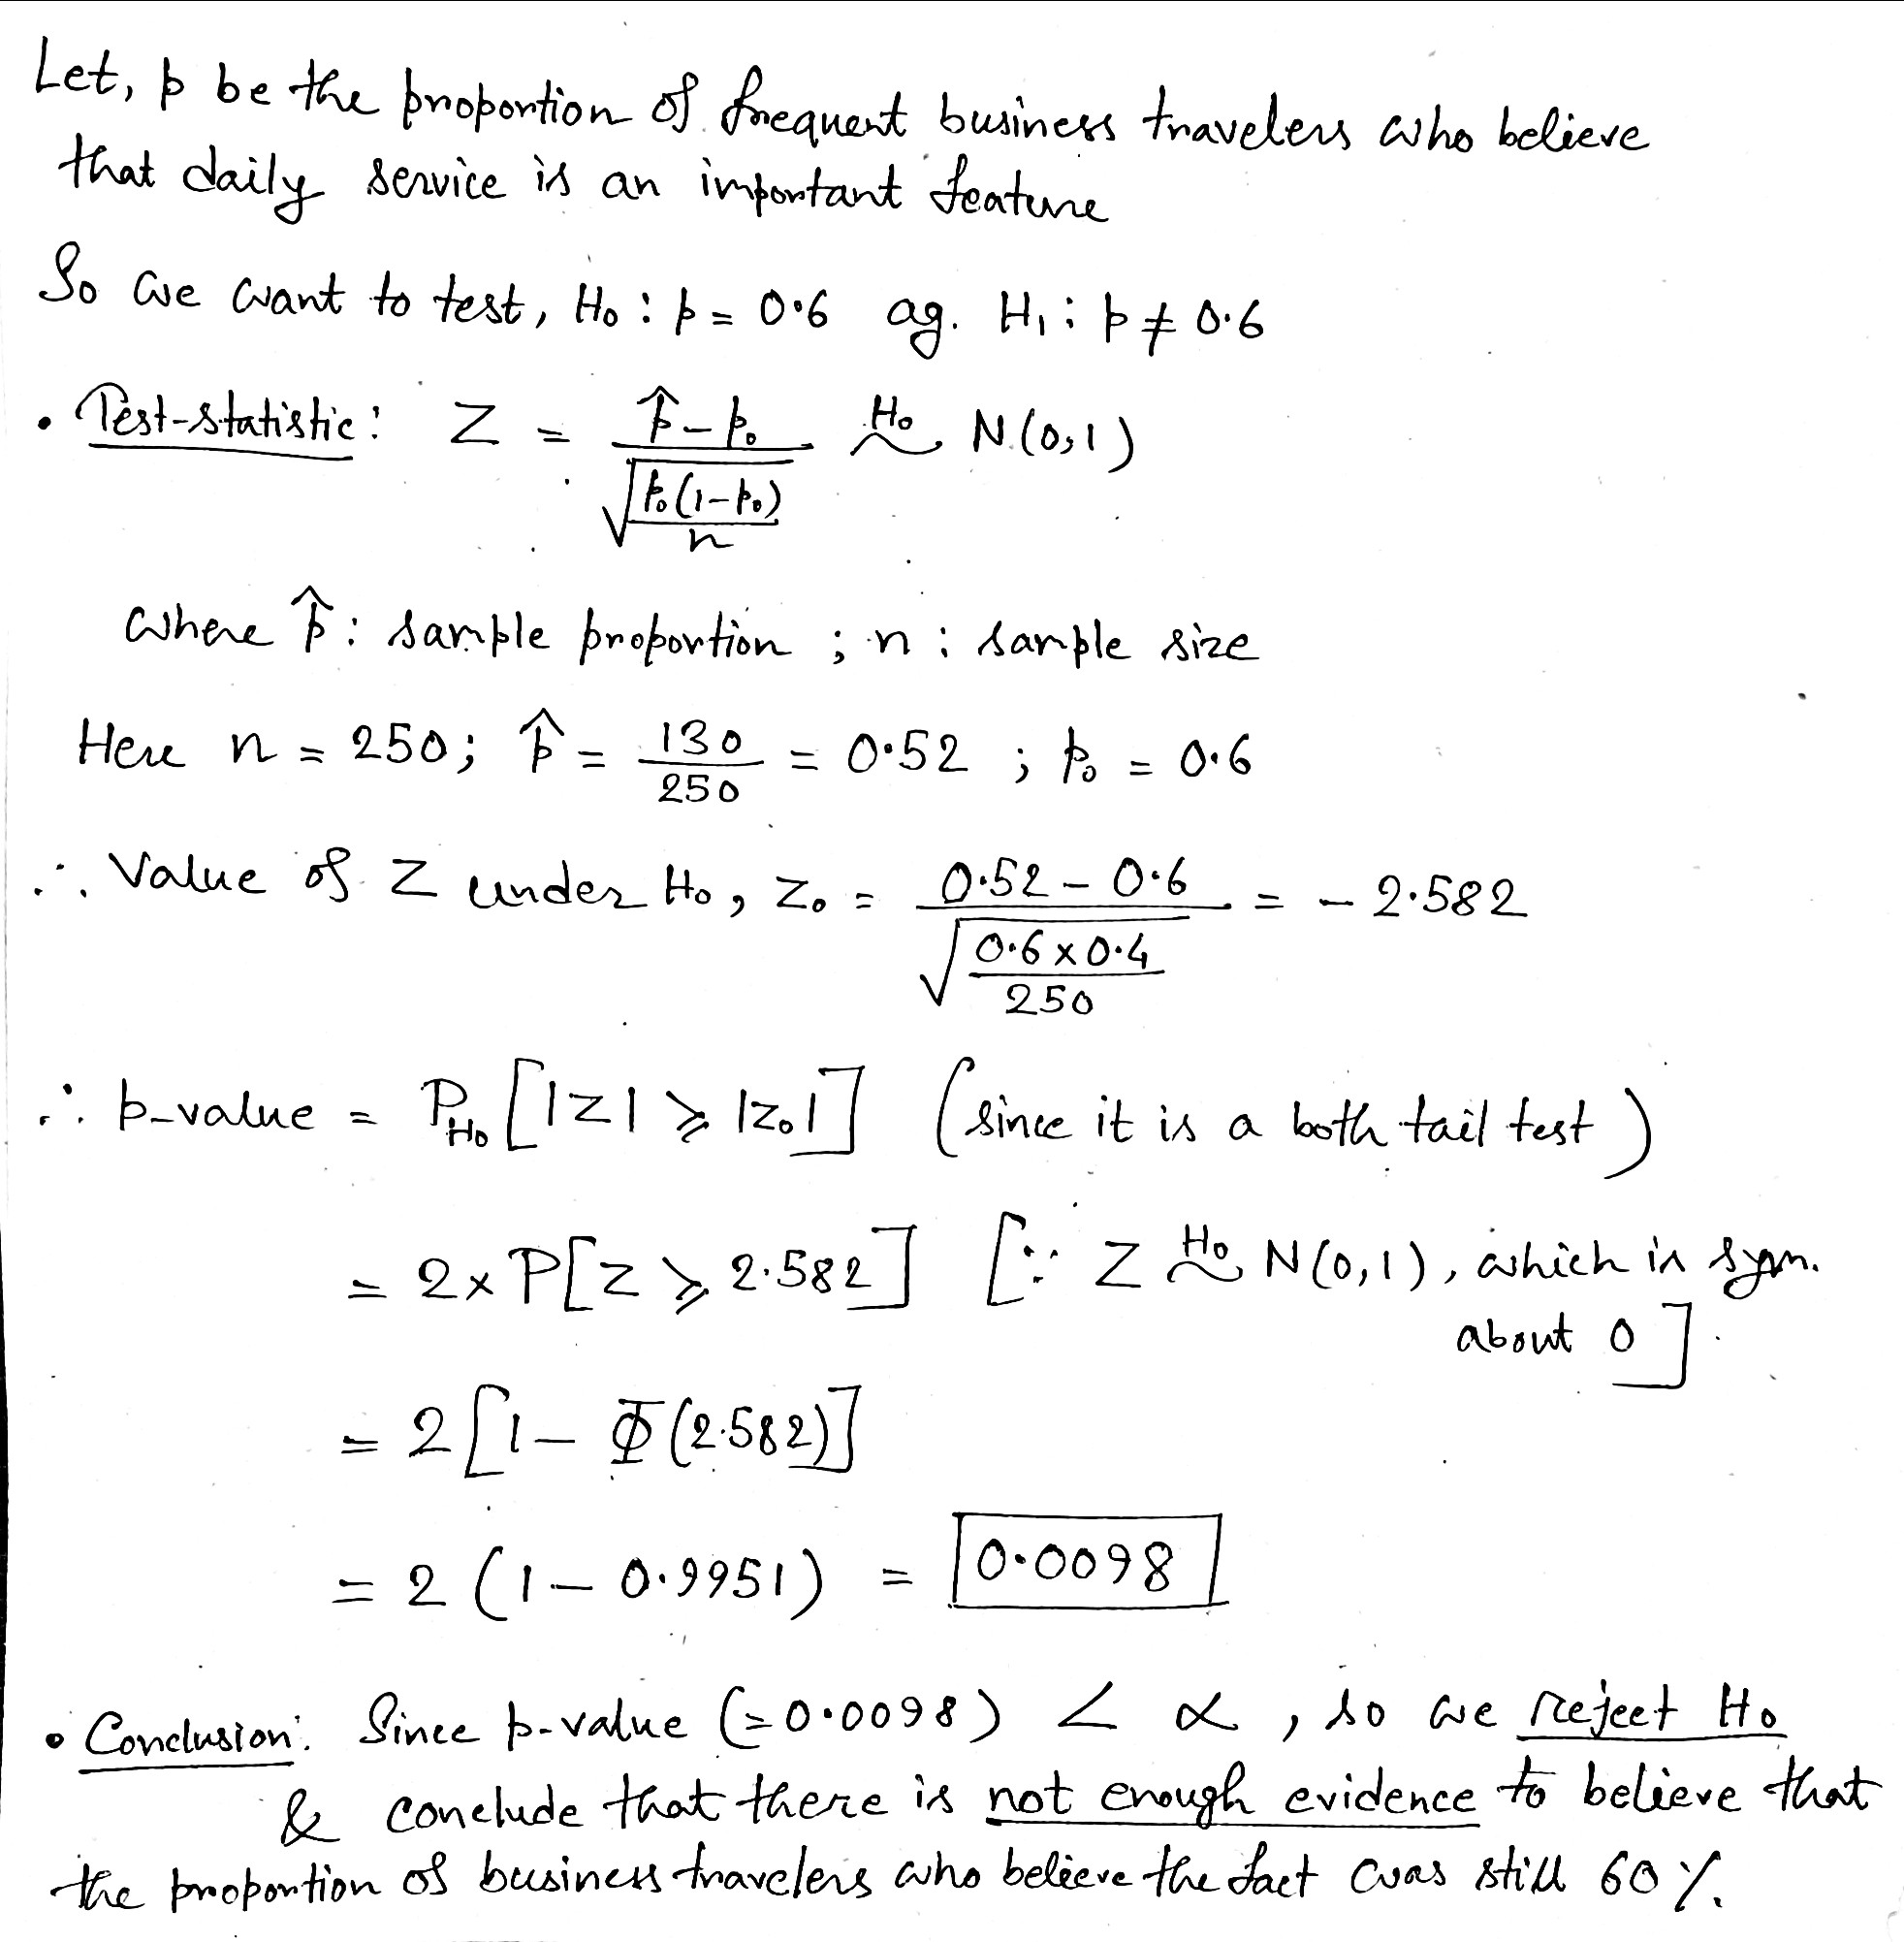 Let, p be the proportion of frequent business travelers who believe
that daily service is an important feature
So we want to test, H₀ : p = 0.6 ag. H₁ : p ≠ 0.6
• Test-statistic : Z = (p̂ − p₀) / √(p₀(1−p₀)/n) ~ᴴ⁰ N(0,1)
where p̂ : sample proportion ; n : sample size
Here n = 250; p̂ = 130/250 = 0.52 ; p₀ = 0.6
∴ Value of Z under H₀, Z₀ = (0.52 − 0.6) / √(0.6×0.4/250) = − 2.582
∴ p-value = P_H₀ [|Z| ⩾ |Z₀|] (since it is a both tail test)
= 2× P[Z ⩾ 2.582] [∵ Z ~ᴴ⁰ N(0,1), which is sym.
about 0]
= 2[1 − Φ(2.582)]
= 2 (1 − 0.9951) = 0.0098
• Conclusion: Since p-value (=0.0098) < α, so we reject H₀
& conclude that there is not enough evidence to believe that
the proportion of business travelers who believe the fact was still 60%.